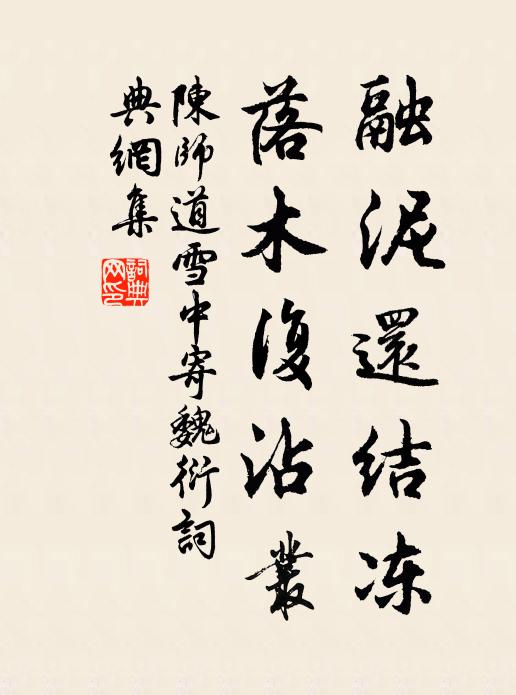 融泥還结冻
落木復沾叢
陳師道雪中寄魏衍詞
典網集
詞典
网印